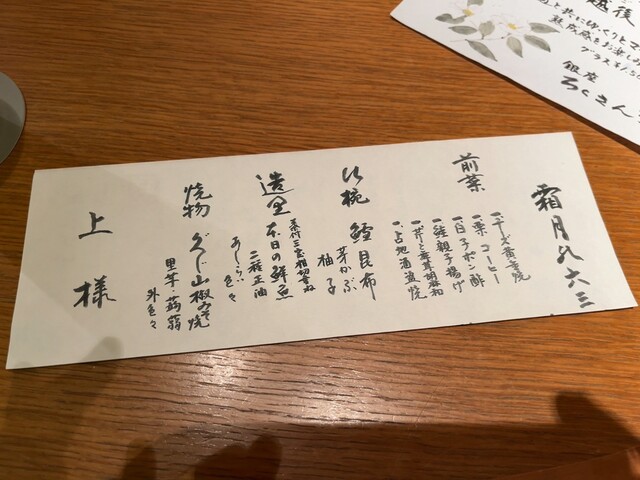 霜月の六三
前菜
一、チーズ黄金焼
一、栗 コーヒー
一、白子ポン酢
一、鮭親子揚げ
一、芹と舞茸胡麻和
一、占地酒盗焼
吸椀 鱈昆布
芽かぶ
柚子
造里 本日の鮮魚
あしらい色々
焼物 ぐじ山椒みそ焼
里芋・蒟蒻
外色々
上様
越後
銀座